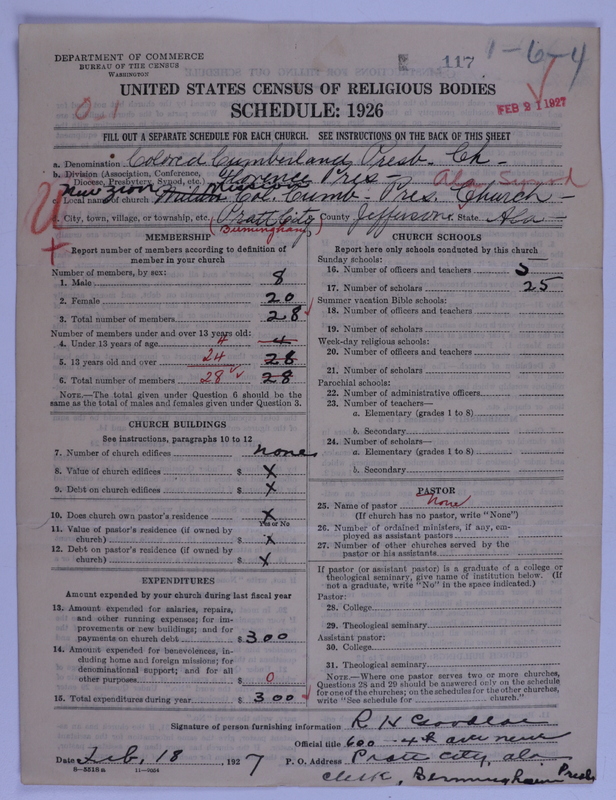 DEPARTMENT OF COMMERCE
BUREAU OF THE CENSUS
WASHINGTON
117
1-6-4
UNITED STATES CENSUS OF RELIGIOUS BODIES
SCHEDULE: 1926
FEB 21 1927
0.1
FILL OUT A SEPARATE SCHEDULE FOR EACH CHURCH. SEE INSTRUCTIONS ON THE BACK OF THIS SHEET
a. Denomination Colored Cumberland Presb. Ch -
b. Division (Association, Conference, Diocese, Presbytery, Synod, etc.) Florence Pres - Ala. Synod
New Zion Mission
c. Local name of church Col. Cumb - Pres. Church -
City, town, village, or township, etc. Pratt City County Jefferson State Ala -
(Birmingham)
MEMBERSHIP
Report number of members according to definition of
member in your church
Number of members, by sex:
1. Male 8
2. Female 20
3. Total number of members 28
Number of members under and over 13 years old:
4. Under 13 years of age 4 4
5. 13 years old and over 24 28
6. Total number of members 28 28
NOTE.—The total given under Question 6 should be
same as the total of males and females given under Question 3.
CHURCH BUILDINGS
See instructions, paragraphs 10 to 12
7. Number of church edifices none
8. Value of church edifices $ X
9. Debt on church edifices $ X
10. Does church own pastor's residence X
Yes or No
11. Value of pastor's residence (if owned by
church) $ X
12. Debt on pastor's residence (if owned by
church) $ X
EXPENDITURES
Amount expended by your church during last fiscal year
13. Amount expended for salaries, repairs,
and other running expenses; for im-
provements or new buildings; and for
payments on church debt $ 300
14. Amount expended for benevolences, in-
cluding home and foreign missions; for
denominational support; and for all
other purposes $ 0
15. Total expenditures during year $ 300
CHURCH SCHOOLS
Report here only schools conducted by this church
Sunday schools:
16. Number of officers and teachers 5
17. Number of scholars 25
Summer vacation Bible schools:
18. Number of officers and teachers
19. Number of scholars
Week-day religious schools:
20. Number of officers and teachers
21. Number of scholars
Parochial schools:
22. Number of administrative officers
23. Number of teachers—
a. Elementary (grades 1 to 8)
b. Secondary
24. Number of scholars—
a. Elementary (grades 1 to 8)
b. Secondary
PASTOR
25. Name of pastor None
(If church has no pastor, write "None")
26. Number of ordained ministers, if any, em-
ployed as assistant pastors
27. Number of other churches served by the
pastor or his assistants
If pastor (or assistant pastor) is a graduate of a college or
theological seminary, give name of institution below. (If
not a graduate, write "No" in the space indicated.)
Pastor:
28. College
29. Theological seminary
Assistant pastor:
30. College
31. Theological seminary
NOTE.—Where one pastor serves two or more churches,
Questions 28 and 29 should be answered only on the schedule
for one of the churches; on the schedules for the other churches,
write "See schedule for church."
Signature of person furnishing information R H
Official title 600 - 4th ave
Date Feb. 18 1927 P. O. Address Pratt City, ala
8-5518a 11-9064
clerk, Bermingham Presb